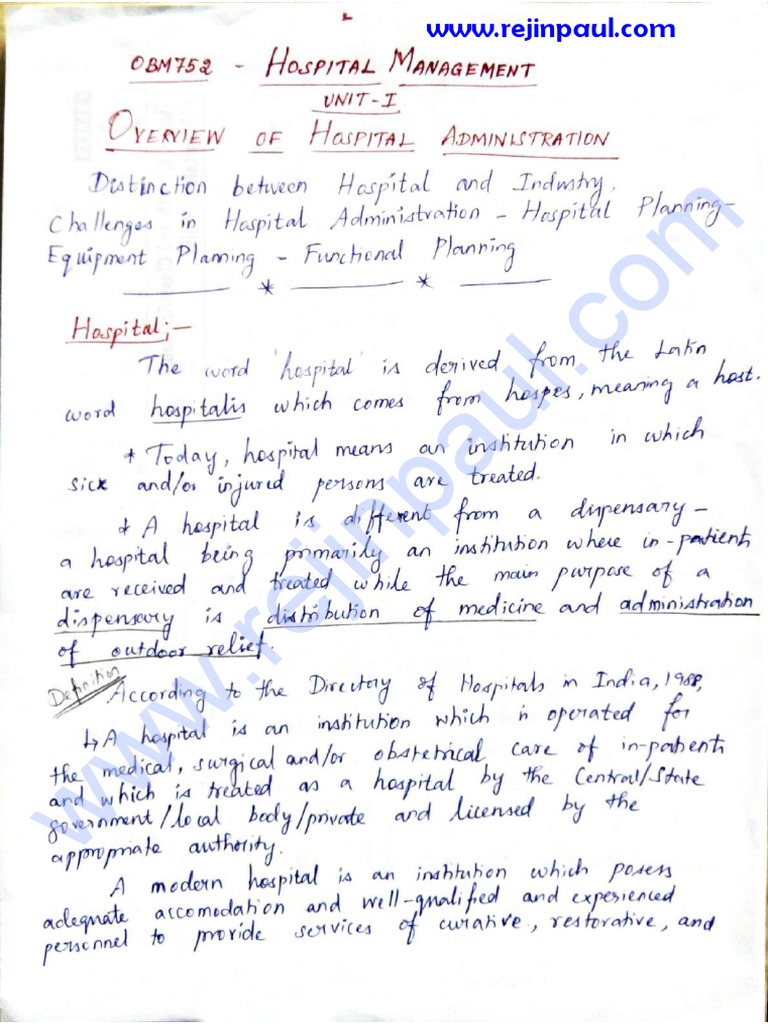 www.rejinpaul.com
OBM752 - HOSPITAL MANAGEMENT
UNIT-I
OVERVIEW OF HOSPITAL ADMINISTRATION
Distinction between Hospital and Industry,
Challenges in Hospital Administration - Hospital Planning-
Equipment Planning - Functional Planning
Hospital;-
The word 'hospital' is derived from the Latin
word hospitalis which comes from hospes, meaning a host.
* Today, hospital means an institution in which
sick and/or injured persons are treated.
* A hospital is different from a dispensary -
a hospital being primarily an institution where in-patients
are received and treated while the main purpose of a
dispensary is distribution of medicine and administration
of outdoor relief.
Definition
According to the Directory of Hospitals in India, 1988,
↳ A hospital is an institution which is operated for
the medical, surgical and/or obstetrical care of in-patients
and which is treated as a hospital by the Central/State
government/local body/private and licensed by the
appropriate authority.
A modern hospital is an institution which posess
adequate accomodation and well-qualified and experienced
personnel to provide services of curative, restorative, and
www.rejinpaul.com